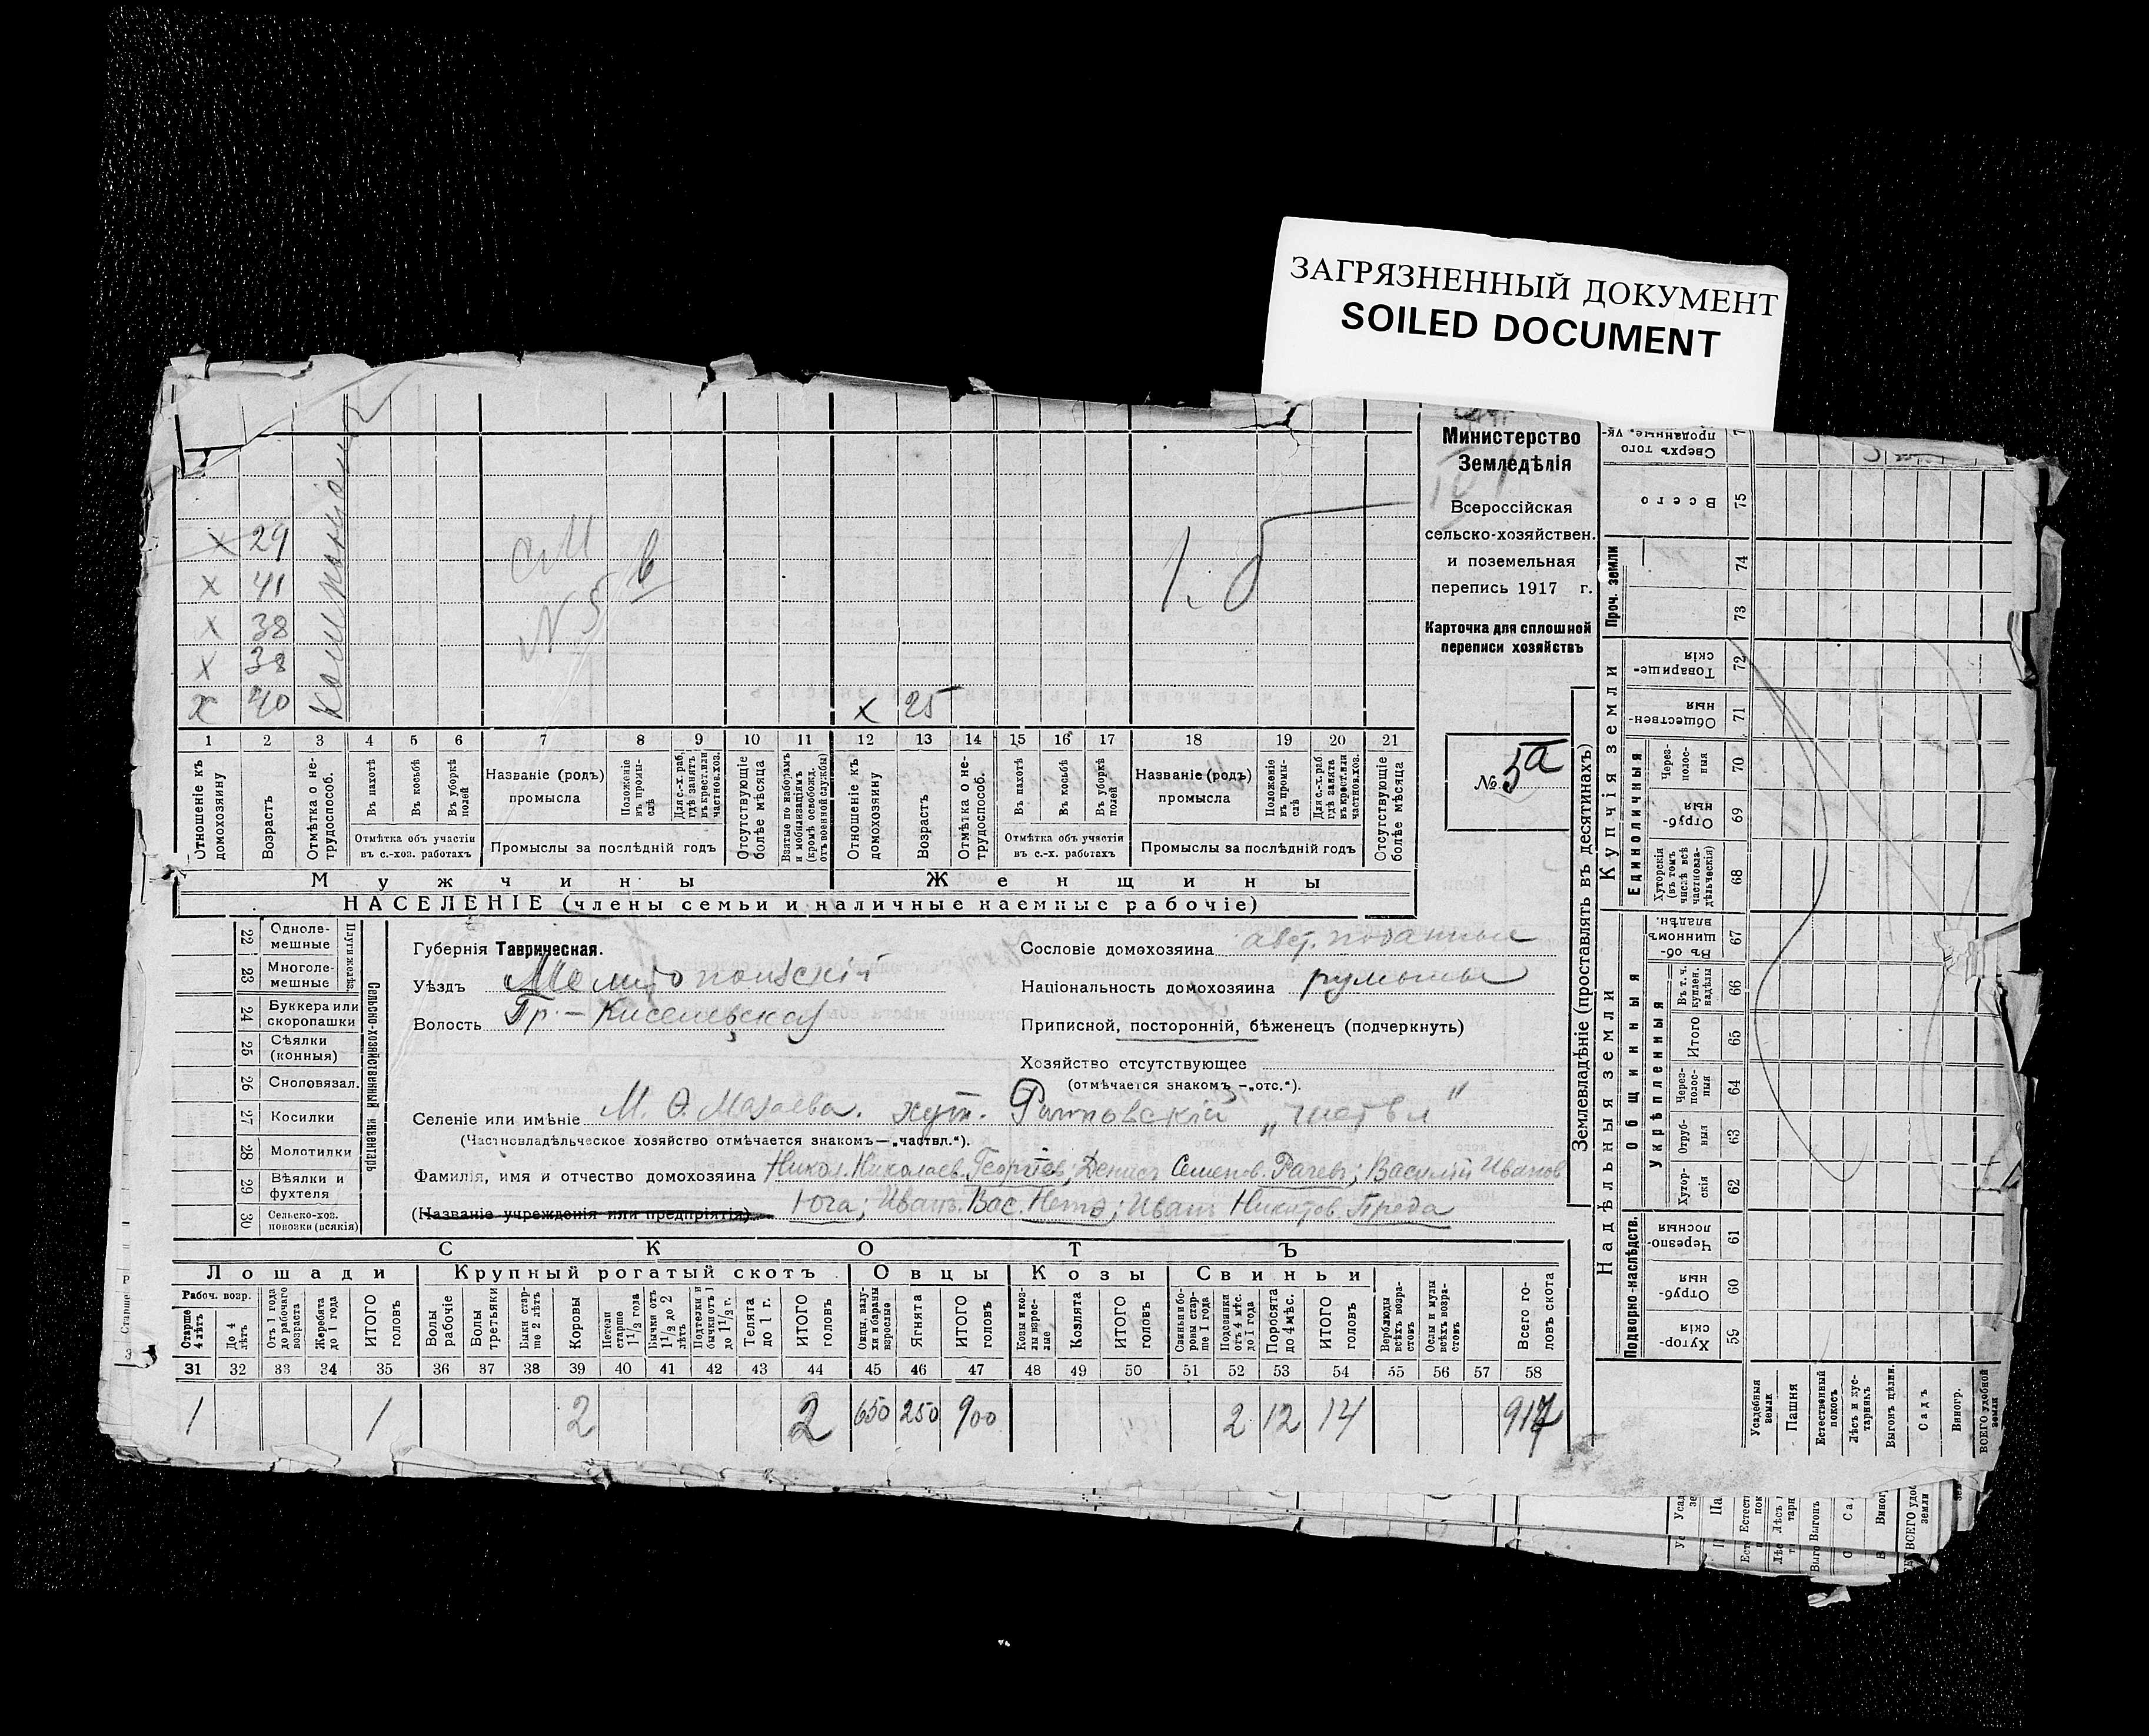 ЗАГРЯЗНЕННЫЙ ДОКУМЕНТ
SOILED DOCUMENT
Министерство
Земледѣлія
Всероссійская
сельско-хозяйствен.
и поземельная
перепись 1917 г.
Карточка для сплошной
переписи хозяйствъ
№ 5а
х 29
х 41
х 38
х 38
х 40
х 25
1 2 3 4 5 6 7 8 9 10 11 12 13 14 15 16 17 18 19 20 21
Отношеніе къ домохозяину
Возрастъ
Отмѣтка о не-трудоспособ.
Въ пахотѣ
Въ косьбѣ
Въ уборкѣ полей
Отмѣтка объ участіи
въ с.-хоз. работахъ
Названіе (родъ)
промысла
Положеніе въ промы-слѣ
Для с.-х. раб. гдѣ занятъ въ крест. или частнов. хоз.
Промыслы за послѣдній годъ
Отсутствующіе болѣе мѣсяца
Взятые по наборамъ и мобилизаціямъ (кромѣ освобожд. отъ военной службы)
Отношеніе къ домохозяину
Возрастъ
Отмѣтка о не-трудоспособ.
Въ пахотѣ
Въ косьбѣ
Въ уборкѣ полей
Отмѣтка объ участіи
въ с.-х. работахъ
Названіе (родъ)
промысла
Положеніе въ промы-слѣ
Для с.-х. раб. гдѣ занята въ крест. или частнов. хоз.
Промыслы за послѣдній годъ
Отсутствующіе болѣе мѣсяца
Мужчины Женщины
НАСЕЛЕНІЕ (члены семьи и наличные наемные рабочіе)
Сельско-хозяйственный инвентарь
Плуги желѣз.
22 Одноле-мешные
23 Многоле-мешные
24 Буккера или скоропашки
25 Сѣялки (конныя)
26 Сноповязал.
27 Косилки
28 Молотилки
29 Вѣялки и фухтеля
30 Сельско-хоз. повозки (всякія)
Губернія Таврическая.
Уѣздъ Мелитопольскій
Волость Гр.-Киселевская
Сословіе домохозяина авст. поданные
Національность домохозяина румыны
Приписной, посторонній, бѣженецъ (подчеркнуть)
Хозяйство отсутствующее
(отмѣчается знакомъ —„отс.“).
Селеніе или имѣніе М. Ѳ. Мазаева. хут.
(Частновладѣльческое хозяйство отмѣчается знакомъ—„частвл.“).
Фамилія, имя и отчество домохозяина Никол. Николаев. Георгіев; Денисъ Семенов. Рачевъ; Василій Иванов
(Названіе учрежденія или предпріятія) Юга; Иванъ Вас. ; Иванъ Никитов. Преда
СКОТЪ
Лошади Крупный рогатый скотъ Овцы Козы Свиньи
Рабоч. возр.
Старше 4 лѣтъ
До 4 лѣтъ
Отъ 1 года до рабочаго возраста
Жеребята до 1 года
ИТОГО головъ
Волы рабочіе
Волы третьяки
Быки стар-ше 2 лѣтъ
Коровы
Нетели старше 1½ года
Бычки отъ 1½ до 2 лѣтъ
Подтелки и бычки отъ 1 до 1½ г.
Телята до 1 г.
ИТОГО головъ
Овцы, валу-хи и бараны взрослые
Ягнята
ИТОГО головъ
Козы и коз-лы взрос-лые
Козлята
ИТОГО головъ
Свиньи и бо-ровы стар-ше 1 года
Подсвинки отъ 4 мѣс. до 1 года
Поросята до 4 мѣс.
ИТОГО головъ
Верблюды всѣхъ возра-стовъ
Ослы и мулы всѣхъ возра-стовъ
Всего го-ловъ скота
31 32 33 34 35 36 37 38 39 40 41 42 43 44 45 46 47 48 49 50 51 52 53 54 55 56 57 58
1 1 2 2 650 250 900 2 12 14 917
Землевладѣніе (проставлять въ десятинахъ)
Надѣльныя земли Купчія земли Проч. земли
Подворно-наслѣдств.
Общинныя
Укрѣпленныя
Единоличныя
Хутор-скія 59
Отруб-ныя 60
Черезпо-лосныя 61
Хутор-скія 62
Отруб-ныя 63
Через-полос-ныя 64
Итого 65
Въ т. ч. куплен. надѣлы 66
Въ об-щинномъ владѣн. 67
Хуторскія (въ томъ числѣ всѣ частновла-дѣльческія) 68
Отруб-ныя 69
Через-полос-ныя 70
Обществен-ныя 71
Товарище-скія 72
73
74
Всего 75
Сверхъ того
Усадебныя земли
Пашня
Естественный покосъ
Лѣсъ и кус-тарникъ
Выгонъ цѣлин.
Садъ
Виногр.
ВСЕГО удобной земли